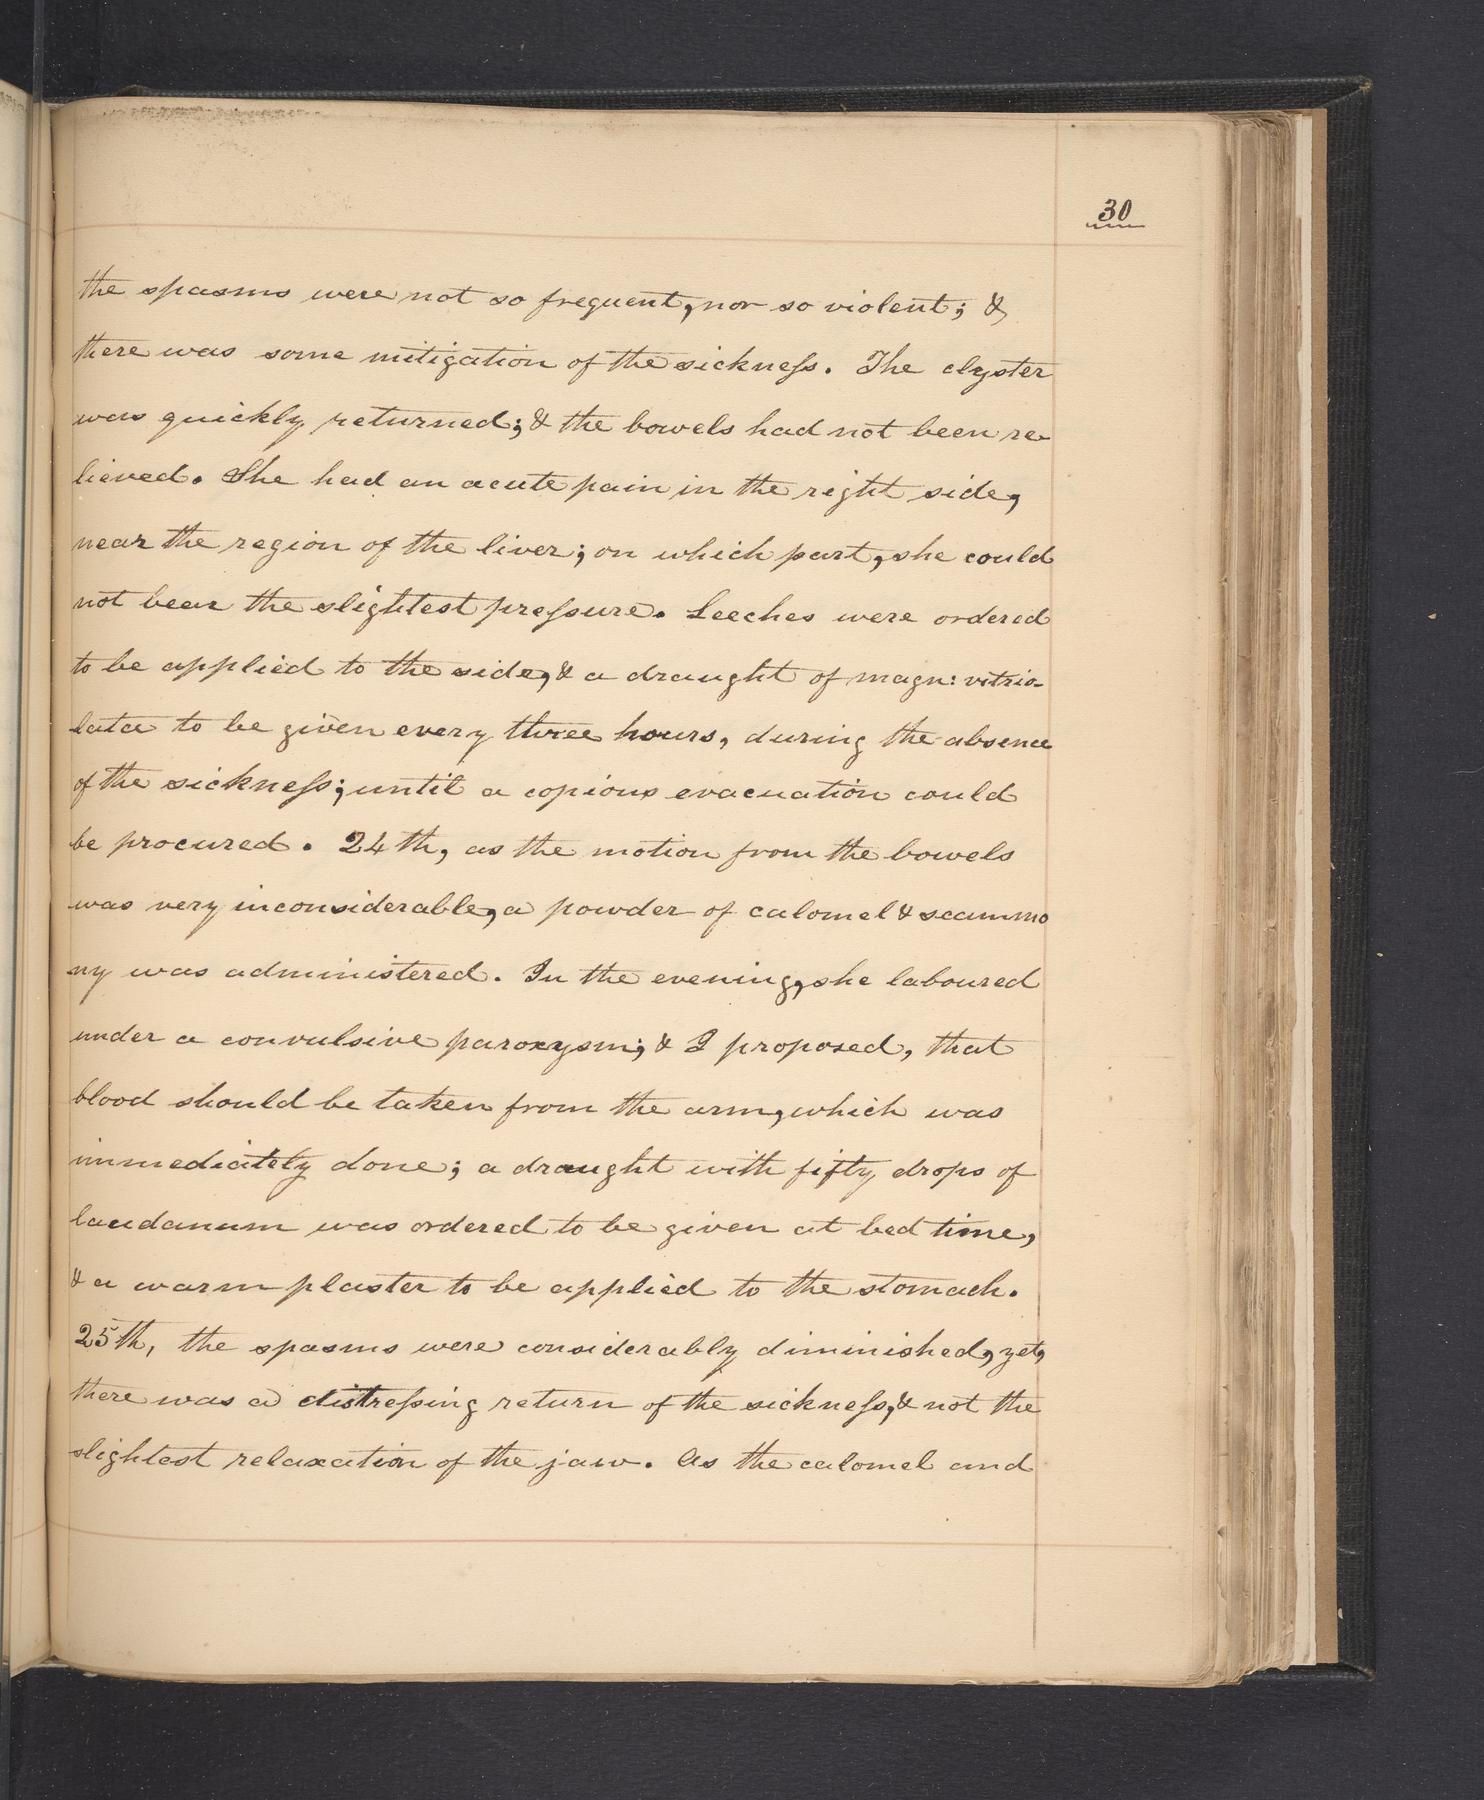 30
the spasms were not so frequent, nor so violent; &
there was some mitigation of the sickneſs. The clyster
was quickly returned; & the bowels had not been re-
lieved. She had an acute pain in the right side,
near the region of the liver; on which part, she could
not bear the slightest preſsure. Leeches were ordered
to be applied to the side, & a draught of magn: vitrio-
lata to be given every three hours, during the absence
of the sickneſs; until a copious evacuation could
be procured. 24th, as the motion from the bowels
was very inconsiderable, a powder of calomel & scammo
ny was administered. In the evening, she laboured
under a convulsive paroxysm; & I proposed, that
blood should be taken from the arm, which was
immediately done; a draught with fifty drops of
laudanum was ordered to be given at bed time,
& a warm plaster to be applied to the stomach.
25th, the spasms were considerably diminished, yet,
there was a distreſsing return of the sickneſs, & not the
slightest relaxation of the jaw. As the calomel and